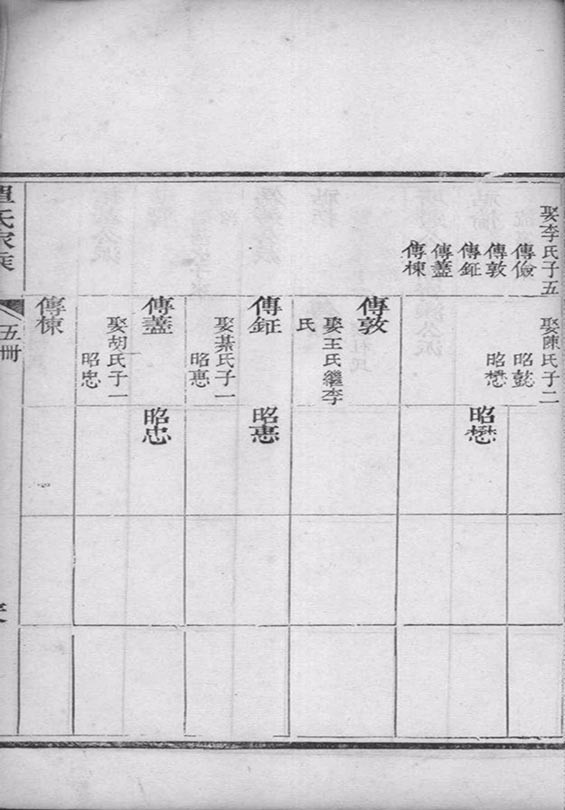 娶李氏子五
傳儉
傳敦
傳鉦
傳藎
傳棟
娶陳氏子二
昭懿
昭懋
傳敦
娶王氏繼李
氏
傳鉦
娶綦氏子一
昭惠
傳藎
娶胡氏子一
昭忠
傳棟
昭懋
昭惠
昭忠
氏家族
五冊